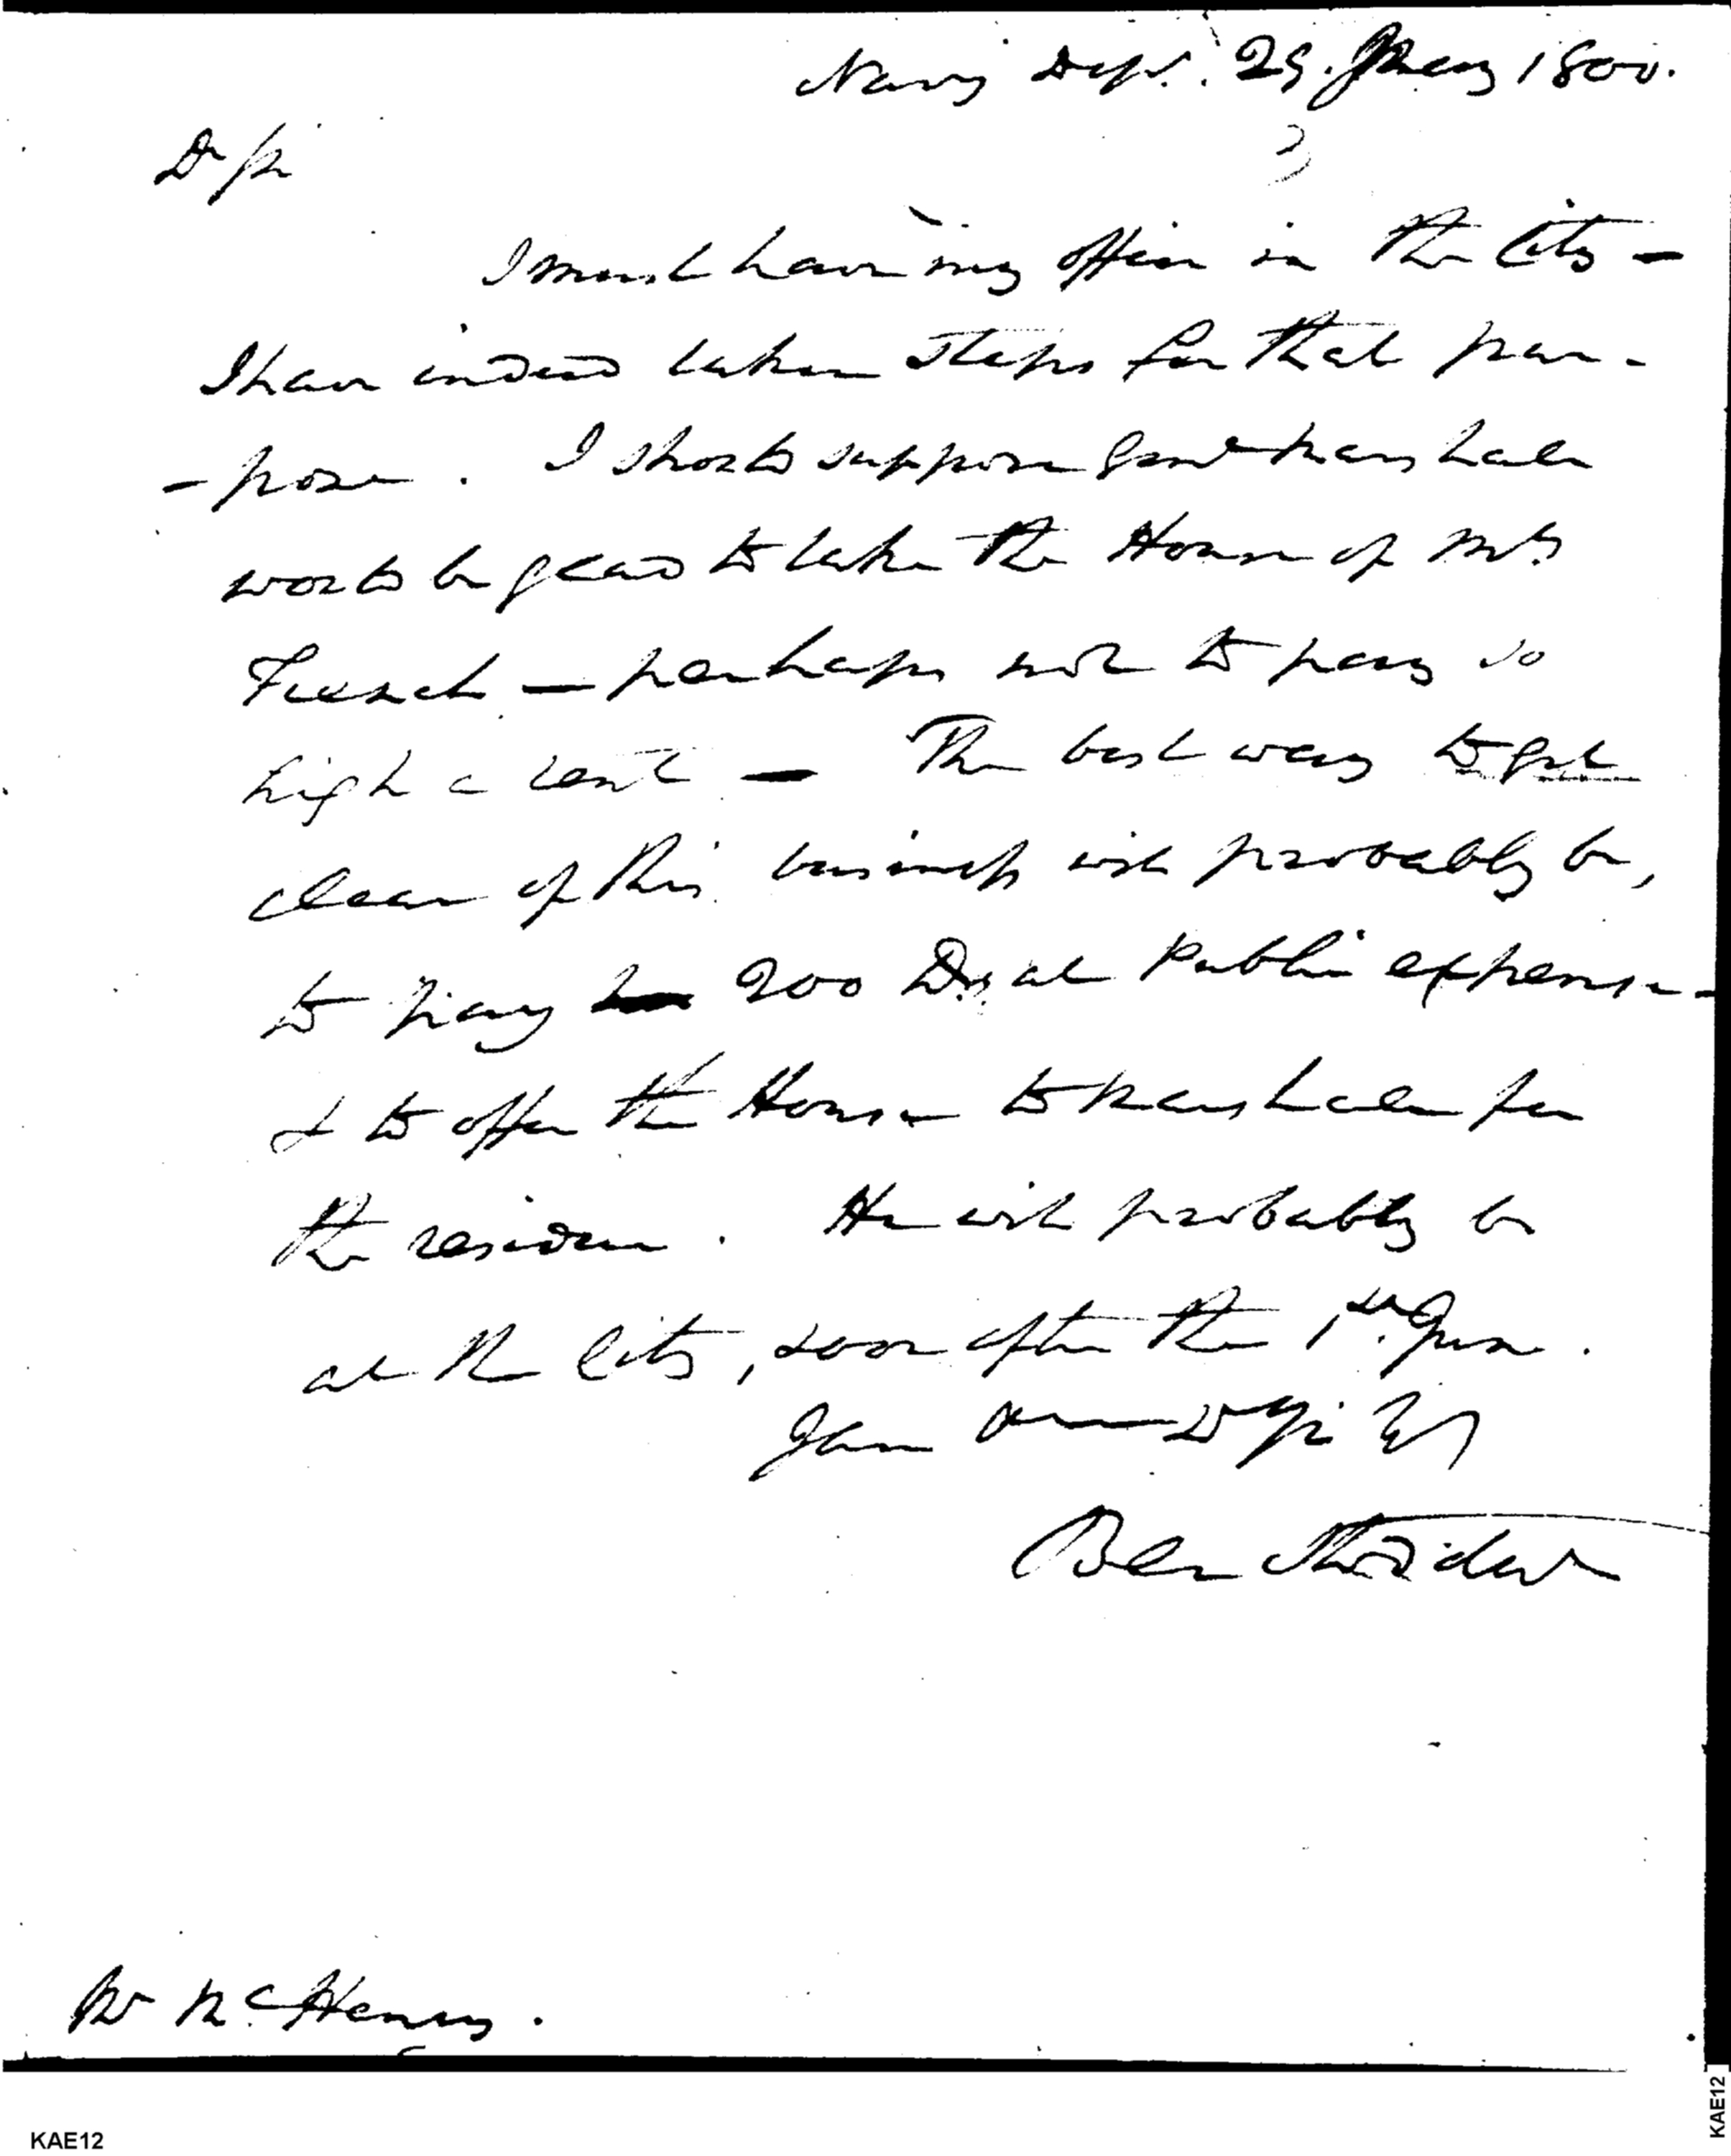 Navy Dept. 29. May 1800.
Dr Sir
I must have my office in the City —
I have indeed taken steps for that pur-
-pose. I should suppose Genl Marshall
would be glad to take the House of Mr.
French — perhaps not to pay so
high a rent — The best way to get
clear of this business will probably be,
to pay 200 Drs at Public expense —
& to offer the House to Marshall for
the residue. He will probably be
at the City, soon after the 1st. June.
I am Dr Sir
Ben Stoddert
Mr McHenry.
KAE12
KAE12